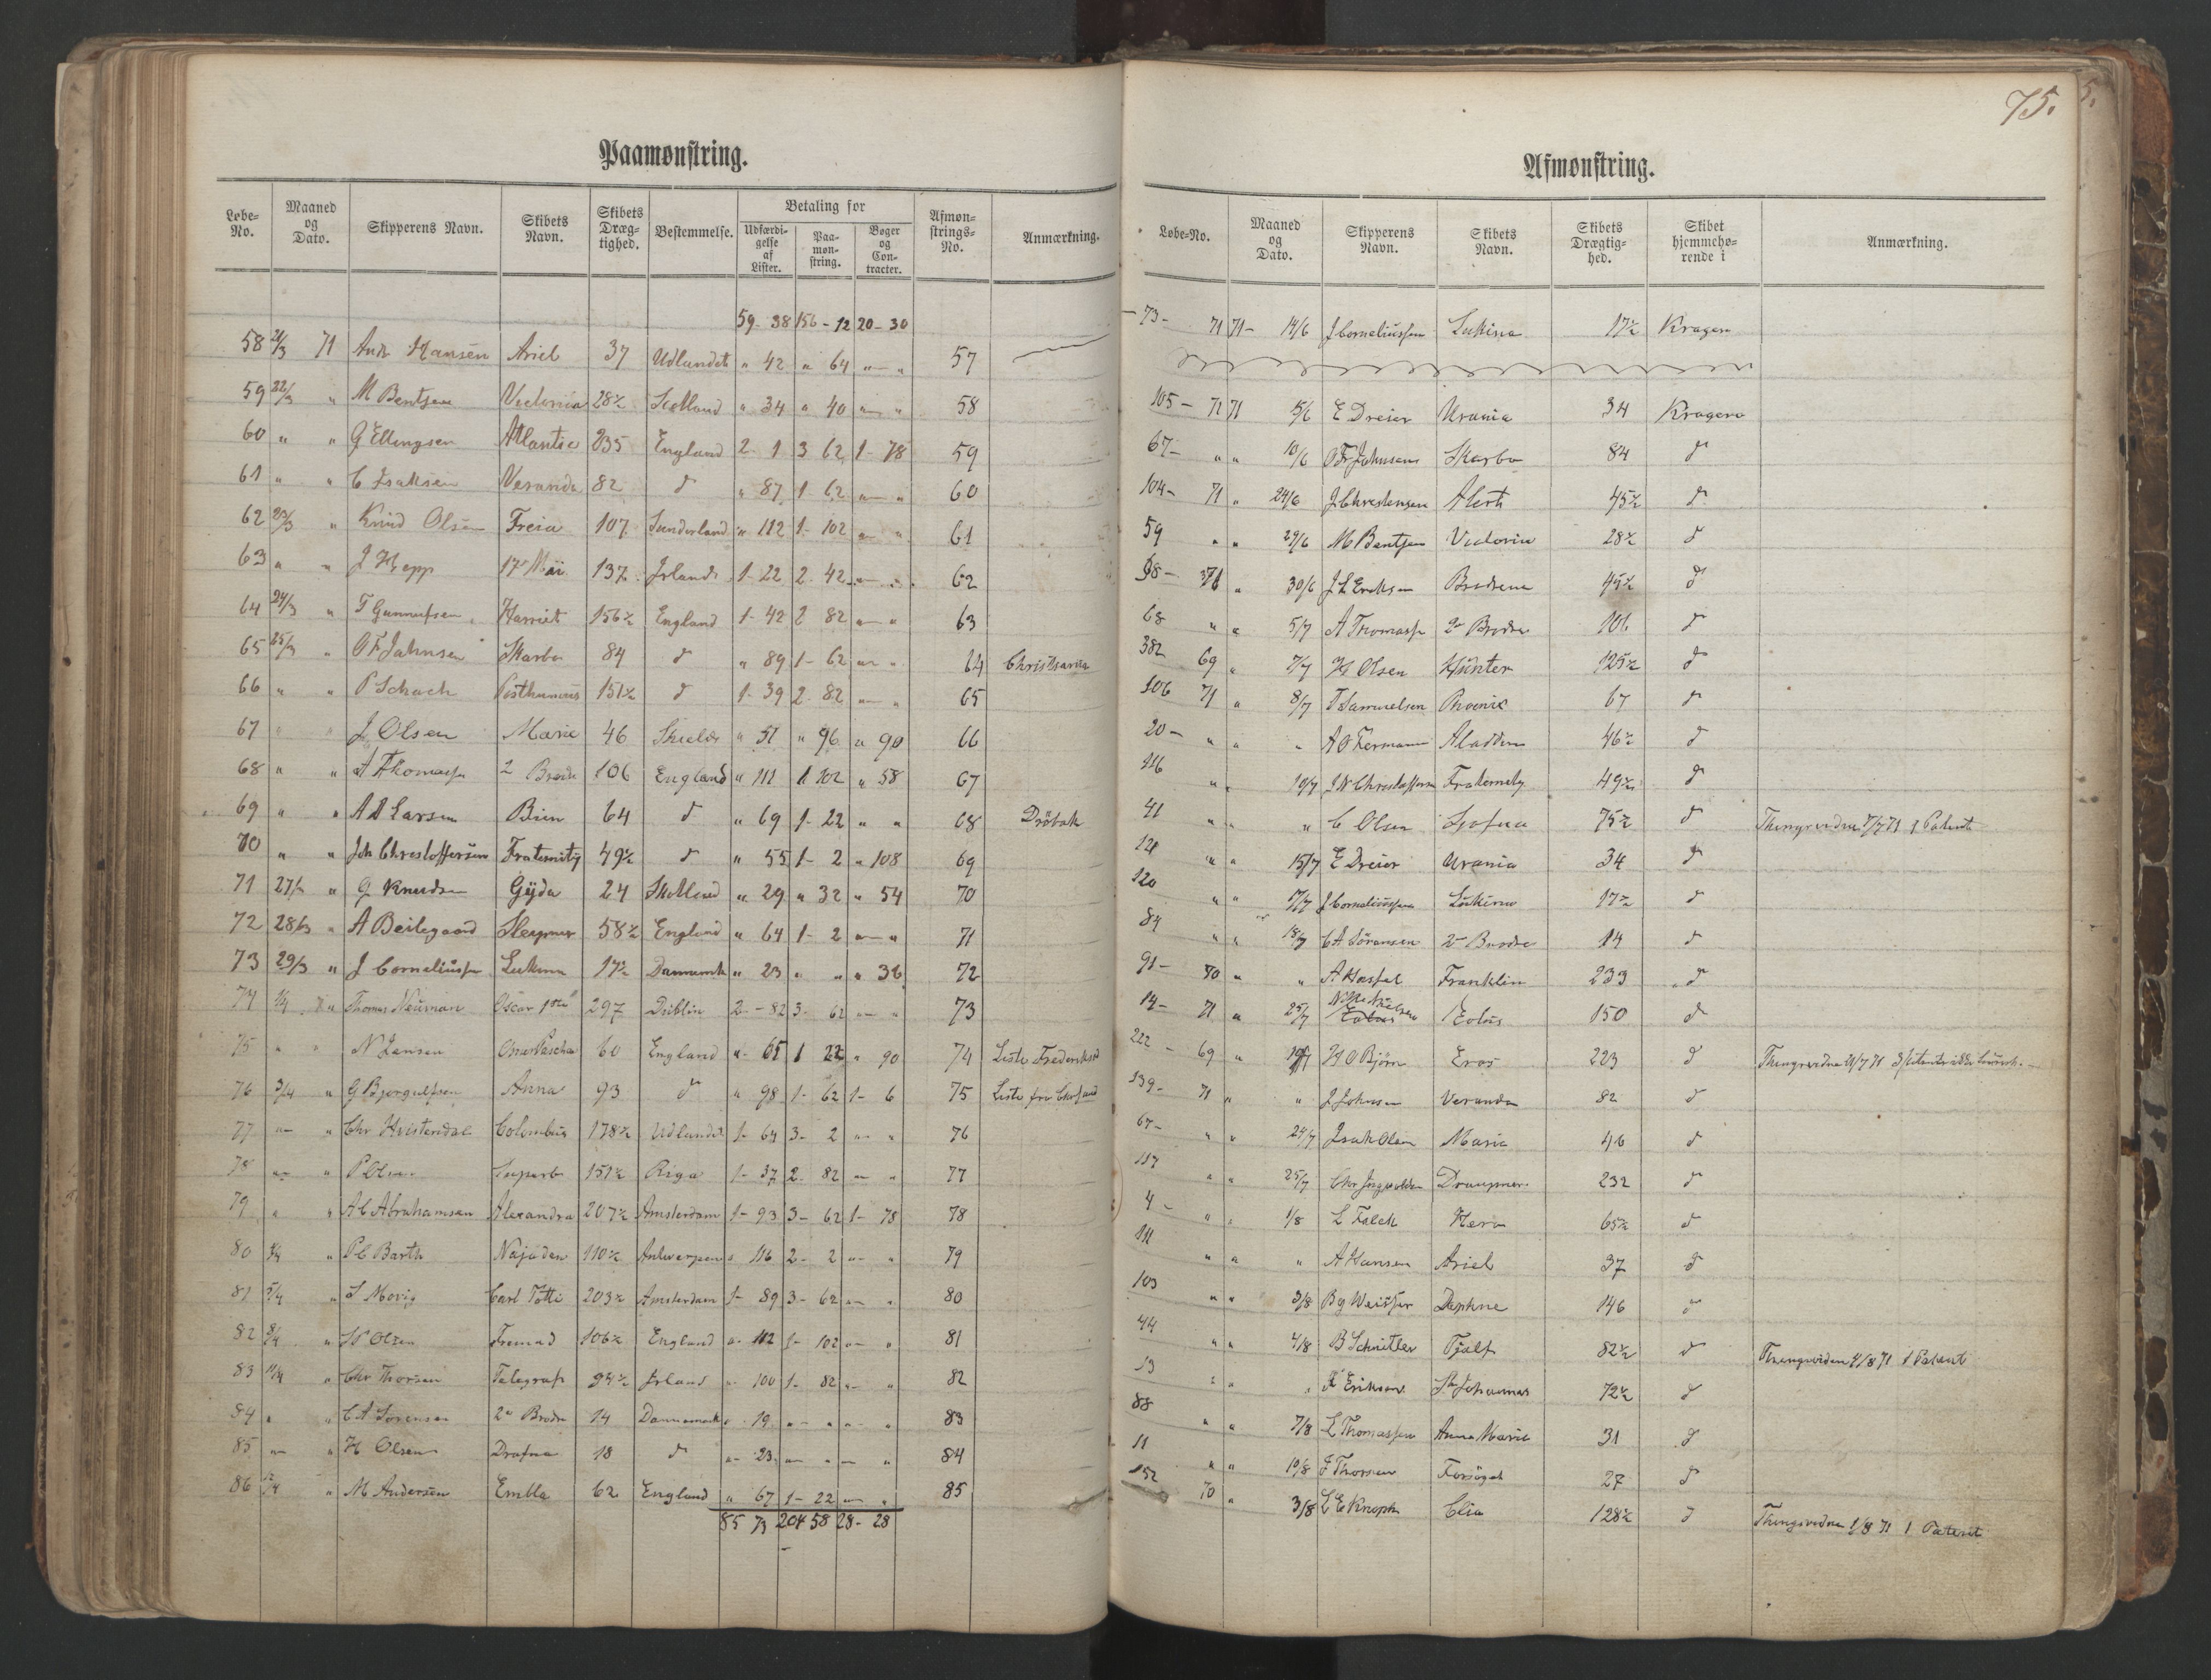 75.
Paamønstring.
Løbe-No. Maaned og Dato. Skipperens Navn. Skibets Navn. Skibets Dræg-tighed. Bestemmelse. Betaling for Udfærdi-gelse af Lister. Paa-mon-string. Bøger og Con-tracter. Afmøn-strings-No. Anmærkning.
59 - 38 156 - 12 20 - 30
58 21/3 71 Andr Hansen Ariel 37 Udlandet " 42 " 64 " — " 57
59 22/3 " M Bentsen Victoria 28½ Scotland " 34 " 40 " — " 58
60 " " G Ellingsen Atlantic 235 England 2 - 1 3 62 1 - 78 59
61 " " C Isaksen Veranda 82 d " 87 1 - 62 " — " 60
62 23/3 " Knud Olsen Freia 107 Sunderland " 112 1 - 102 " — " 61
63 " " J Hepp 17 Mai 137 Irland 1 - 22 2 - 42 " — " 62
64 24/3 " T Gunnufsen Harriet 156½ England 1 - 42 2 82 " — " 63
65 25/3 " O F Jahnsen Skarbo 84 d " 89 1 - 62 " — " 64 Christiania
66 " " P Schach Posthumus 151½ d 1 - 39 2 - 82 " — " 65
67 " " J Olsen Marie 46 Shields " 51 " 96 " 90 66
68 " " A Thomass 2 Brødre 106 England " 111 1 102 " 58 67
69 " " A A Larsen Bien 64 d " 69 1 - 22 " " 68 Dröbak
70 " " Joh Christoffersen Fraternity 49½ d " 55 1 - 2 " 108 69
71 27/3 " G Knudsen Gyda 24 Skotland " 29 " 32 " 54 70
72 28/3 " A Beilegaard Sleipner 58½ England " 64 1 - 2 " — " 71
73 29/3 " J Corneliussen Lukina 17½ Danmark " 23 " " " 36 72
74 1/4 " Thomas Neuman Oscar 1ste 297 Dublin 2 - 82 3 - 62 " — " 73
75 " " N Jensen Omer Pascha 60 England " 65 1 22 " 90 74 Liste Frederiksst
76 3/4 " G Bjorgulfsen Anna 93 d " 98 1 - 62 1 - 6 75 Liste fra Chrsand
77 " " Chr Hvistendal Columbus 178½ Udlandet 1 - 64 3 - 2 " — " 76
78 " " P Olsen Superb 151½ Riga 1 - 37 2 - 82 " — " 77
79 " " A C Abrahamsen Alexandra 207½ Amsterdam 1 - 93 3 - 62 1 - 78 78
80 4/4 " P C Barth Najaden 110½ Antwerpen " 116 2 - 2 " — " 79
81 5/4 " S Movig Carl Totti 203½ Amsterdam 1 - 89 3 - 62 " — " 80
82 8/4 " Olsen Fremad 106½ England " 112 1 - 102 " — " 81
83 11/4 " Chr Thorsen Telegraf 94½ Irland " 100 1 - 82 " — " 82
84 " " C A Sørensen 2de Brødre 14 Dannemark " 19 " — " " — " 83
85 " " H Olsen Drafna 18 d " 23 " — " " — " 84
86 12/4 " M Andersen Embla 62 England " 67 1 - 22 " — " 85
85 73 204 58 28 - 28
Afmønstring.
Løbe-No. Maaned og Dato. Skipperens Navn. Skibets Navn. Skibets Drægtig-hed. Skibet hjemmehø-rende i Anmærkning.
73 - 71 71 - 14/6 J Corneliussen Lukina 17½ Kragerø
105 - 71 71 5/6 E Dreier Urania 34 Kragerø
67 - " " 10/6 O F Jahnsen Skarbo 84 d
104 - 71 " 24/6 J Christensen Alert 45½ d
59 " " 29/6 M Bentsen Victoria 28½ d
98 - 71 " 30/6 J L Eriksen Brødrene 45½ d
68 " " 5/7 A Thomass 2de Brødre 106 d
382 69 " 7/7 H Olsen Hunter 125½ d
106 71 " 8/7 T Samuelsen Phoenix 67 d
20 - " " " A O Fermann Aladdin 46½ d
116 " " 10/7 J N Christoffersen Fraternity 49½ d
41 " " " C Olsen 75½ d Thingvidne 7/7 71 1 Patent
121 " " 15/7 E Dreier Urania 34 d
120 " " 17/7 J Corneliussen Lukina 17½ d
84 " " 18/7 C A Sörensen 2de Brødre 14 d
91 - 70 " " A Hassel Franklin 233 d
14 - 71 " 25/7 Eolus 150 d
222 - 69 " H O Bjørn Eros 223 d Thingvidne
139 - 71 " " J Johnsen Veranda 82 d
67 - " " 24/7 Isak Olsen Maria 46 d
117 " " 25/7 Chr Draupner 232 d
4 - " " 1/8 L Falck Hero 65½ d
111 " " " A Hansen Ariel 37 d
103 " " 3/8 B g Weisser Daphne 146 d
44 " " 4/8 B Schnitler Tjalf 82½ d Thingvidne 4/8 71 1 Patent
13 " " " Eriksen St Johannes 72½ d
88 " " 7/8 L Thomassen Anna Marie 31 d
11 " " 10/8 J Thorsen Forsöget 27 d
152 70 " 3/8 L E Knoph Clio 128½ d Thingvidne 1/8 71 1 Patent